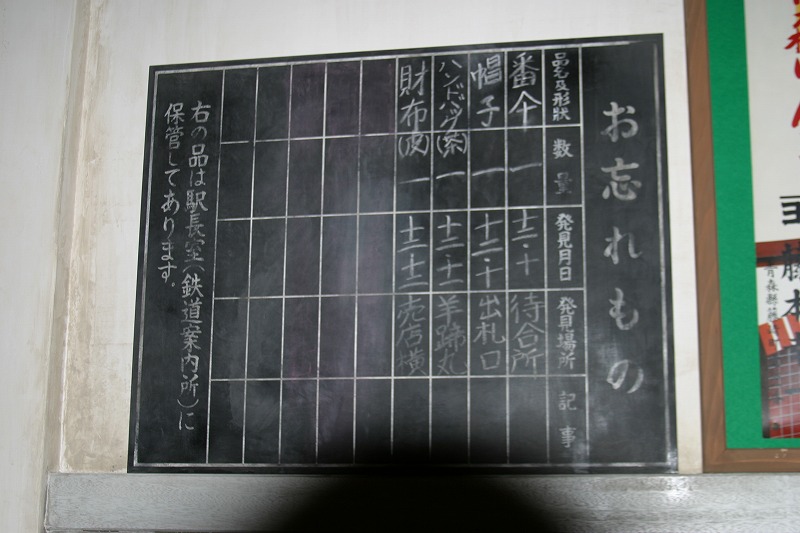 お忘れもの
品名及形状 数量 発見月日 発見場所 記事
番傘 一 十二・十 待合所
帽子 一 十二・十 出札口
ハンドバック(茶) 一 十二・十一 羊蹄丸
財布(皮) 一 十二・十二 売店横
右の品は駅長室(鉄道案内所)に
保管してあります。
青森縣